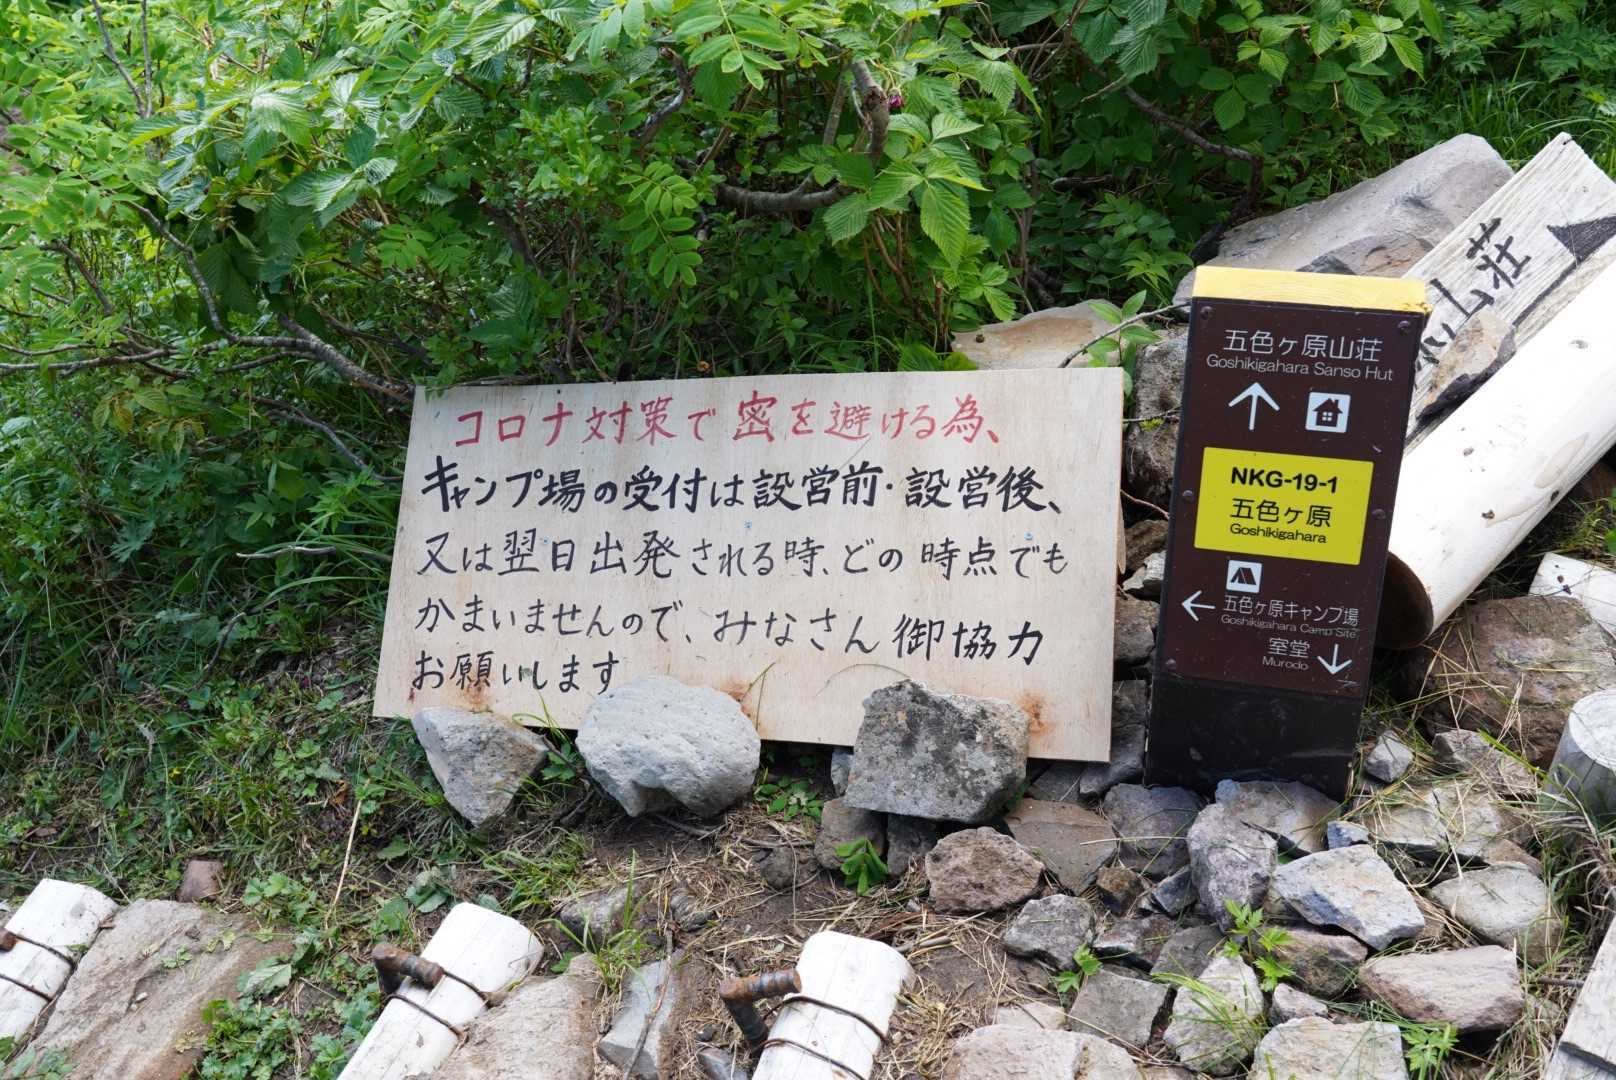 コロナ対策で密を避ける為、
キャンプ場の受付は設営前・設営後、
又は翌日出発される時、どの時点でも
かまいませんので、みなさん御協力
お願いします
五色ヶ原山荘
Goshikigahara Sanso Hut
NKG-19-1
五色ヶ原
Goshikigahara
五色ヶ原キャンプ場
Goshikigahara Camp Site
室堂
Murodo
山荘